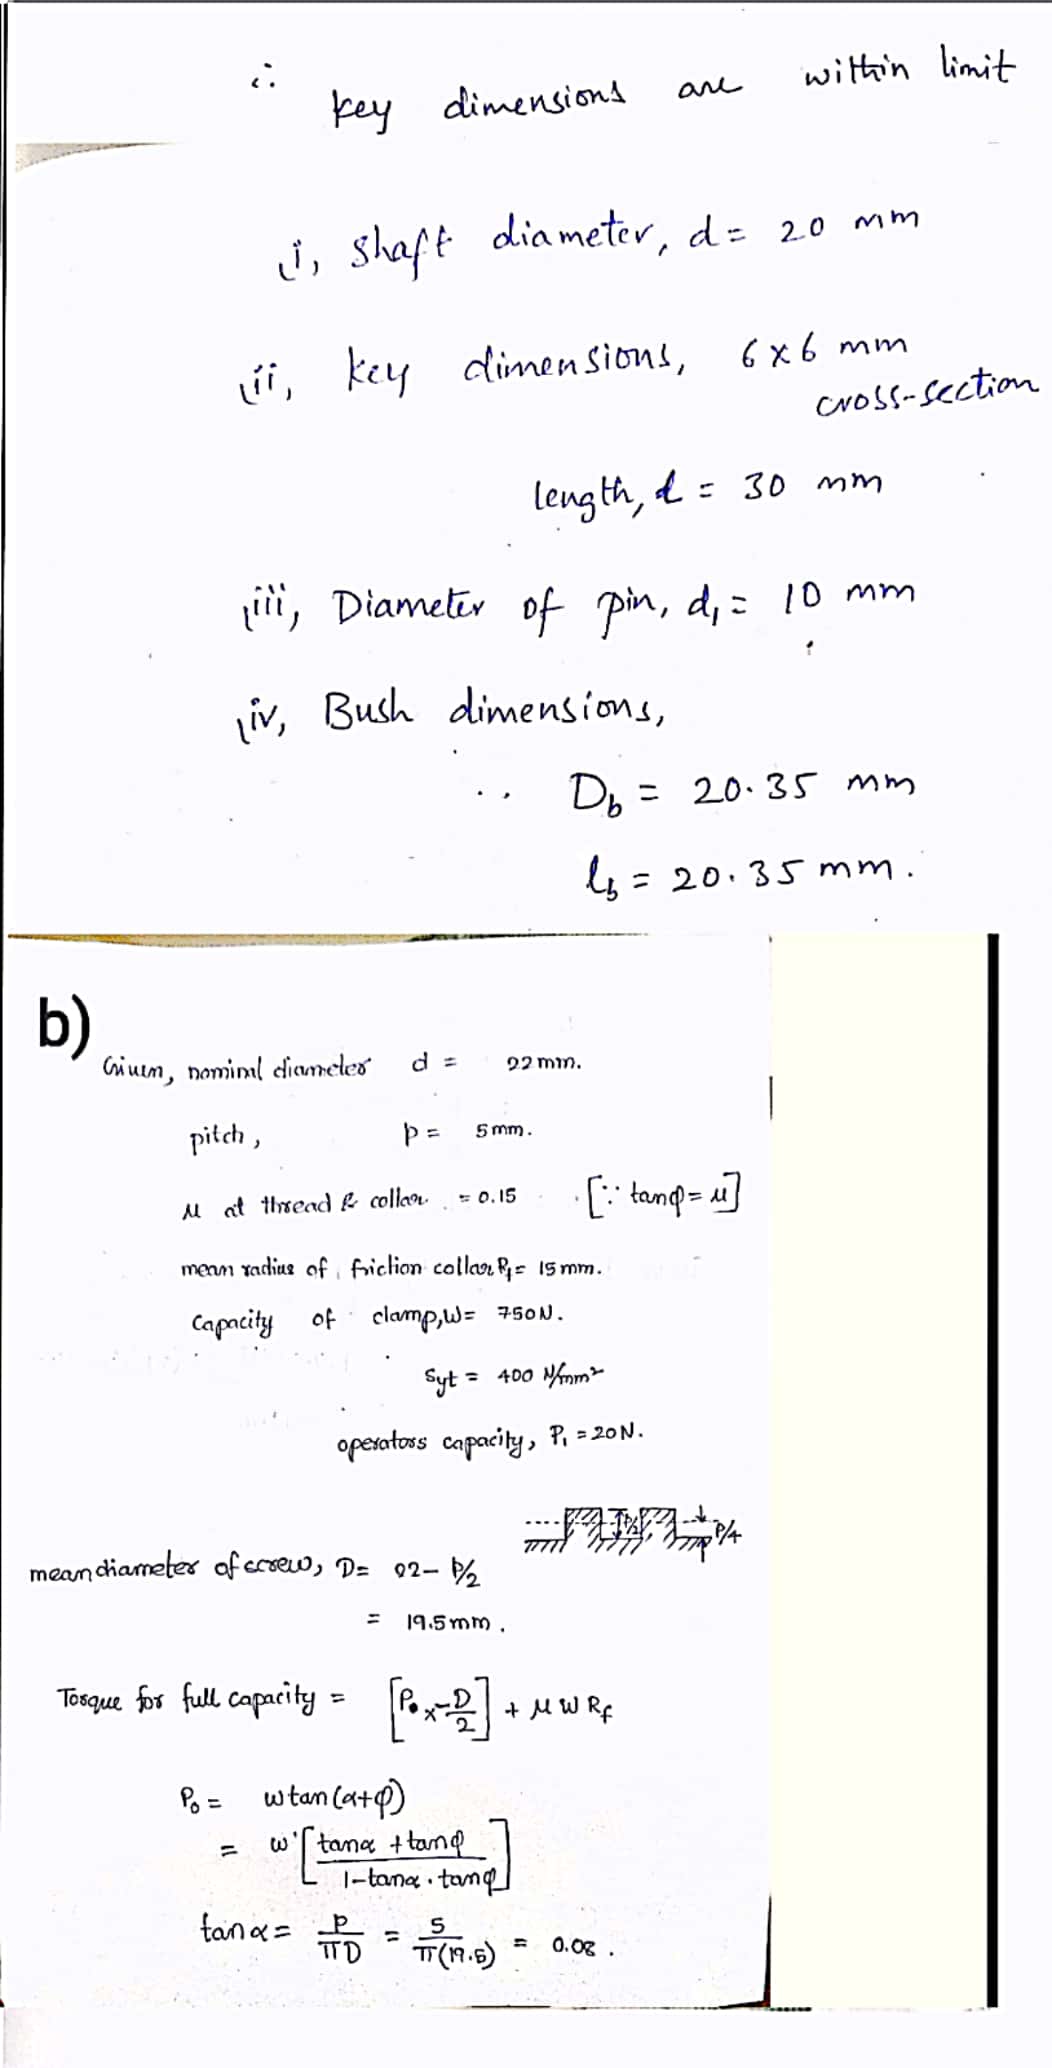 ∴ key dimensions are within limit
i, shaft diameter, d = 20 mm
ii, key dimensions, 6 x 6 mm
cross-section
length, l = 30 mm
iii, Diameter of pin, d₁ = 10 mm
iv, Bush dimensions,
D_b = 20.35 mm
l_b = 20.35 mm.
b)
Given, nominal diameter d = 22 mm.
pitch, p = 5 mm.
μ at thread & collar = 0.15 [∵ tanφ = μ]
mean radius of friction collar R_f = 15 mm.
Capacity of clamp, W = 750 N.
Syt = 400 N/mm²
operators capacity, P₁ = 20 N.
P/2 P/4
mean diameter of screw, D = 22 - P/2
= 19.5 mm.
Torque for full capacity = [P₀ x D/2] + μ W R_f
P₀ = w tan(α+φ)
= w [tanα + tanφ / 1 - tanα . tanφ]
tanα = P/πD = 5/π(19.5) = 0.08.